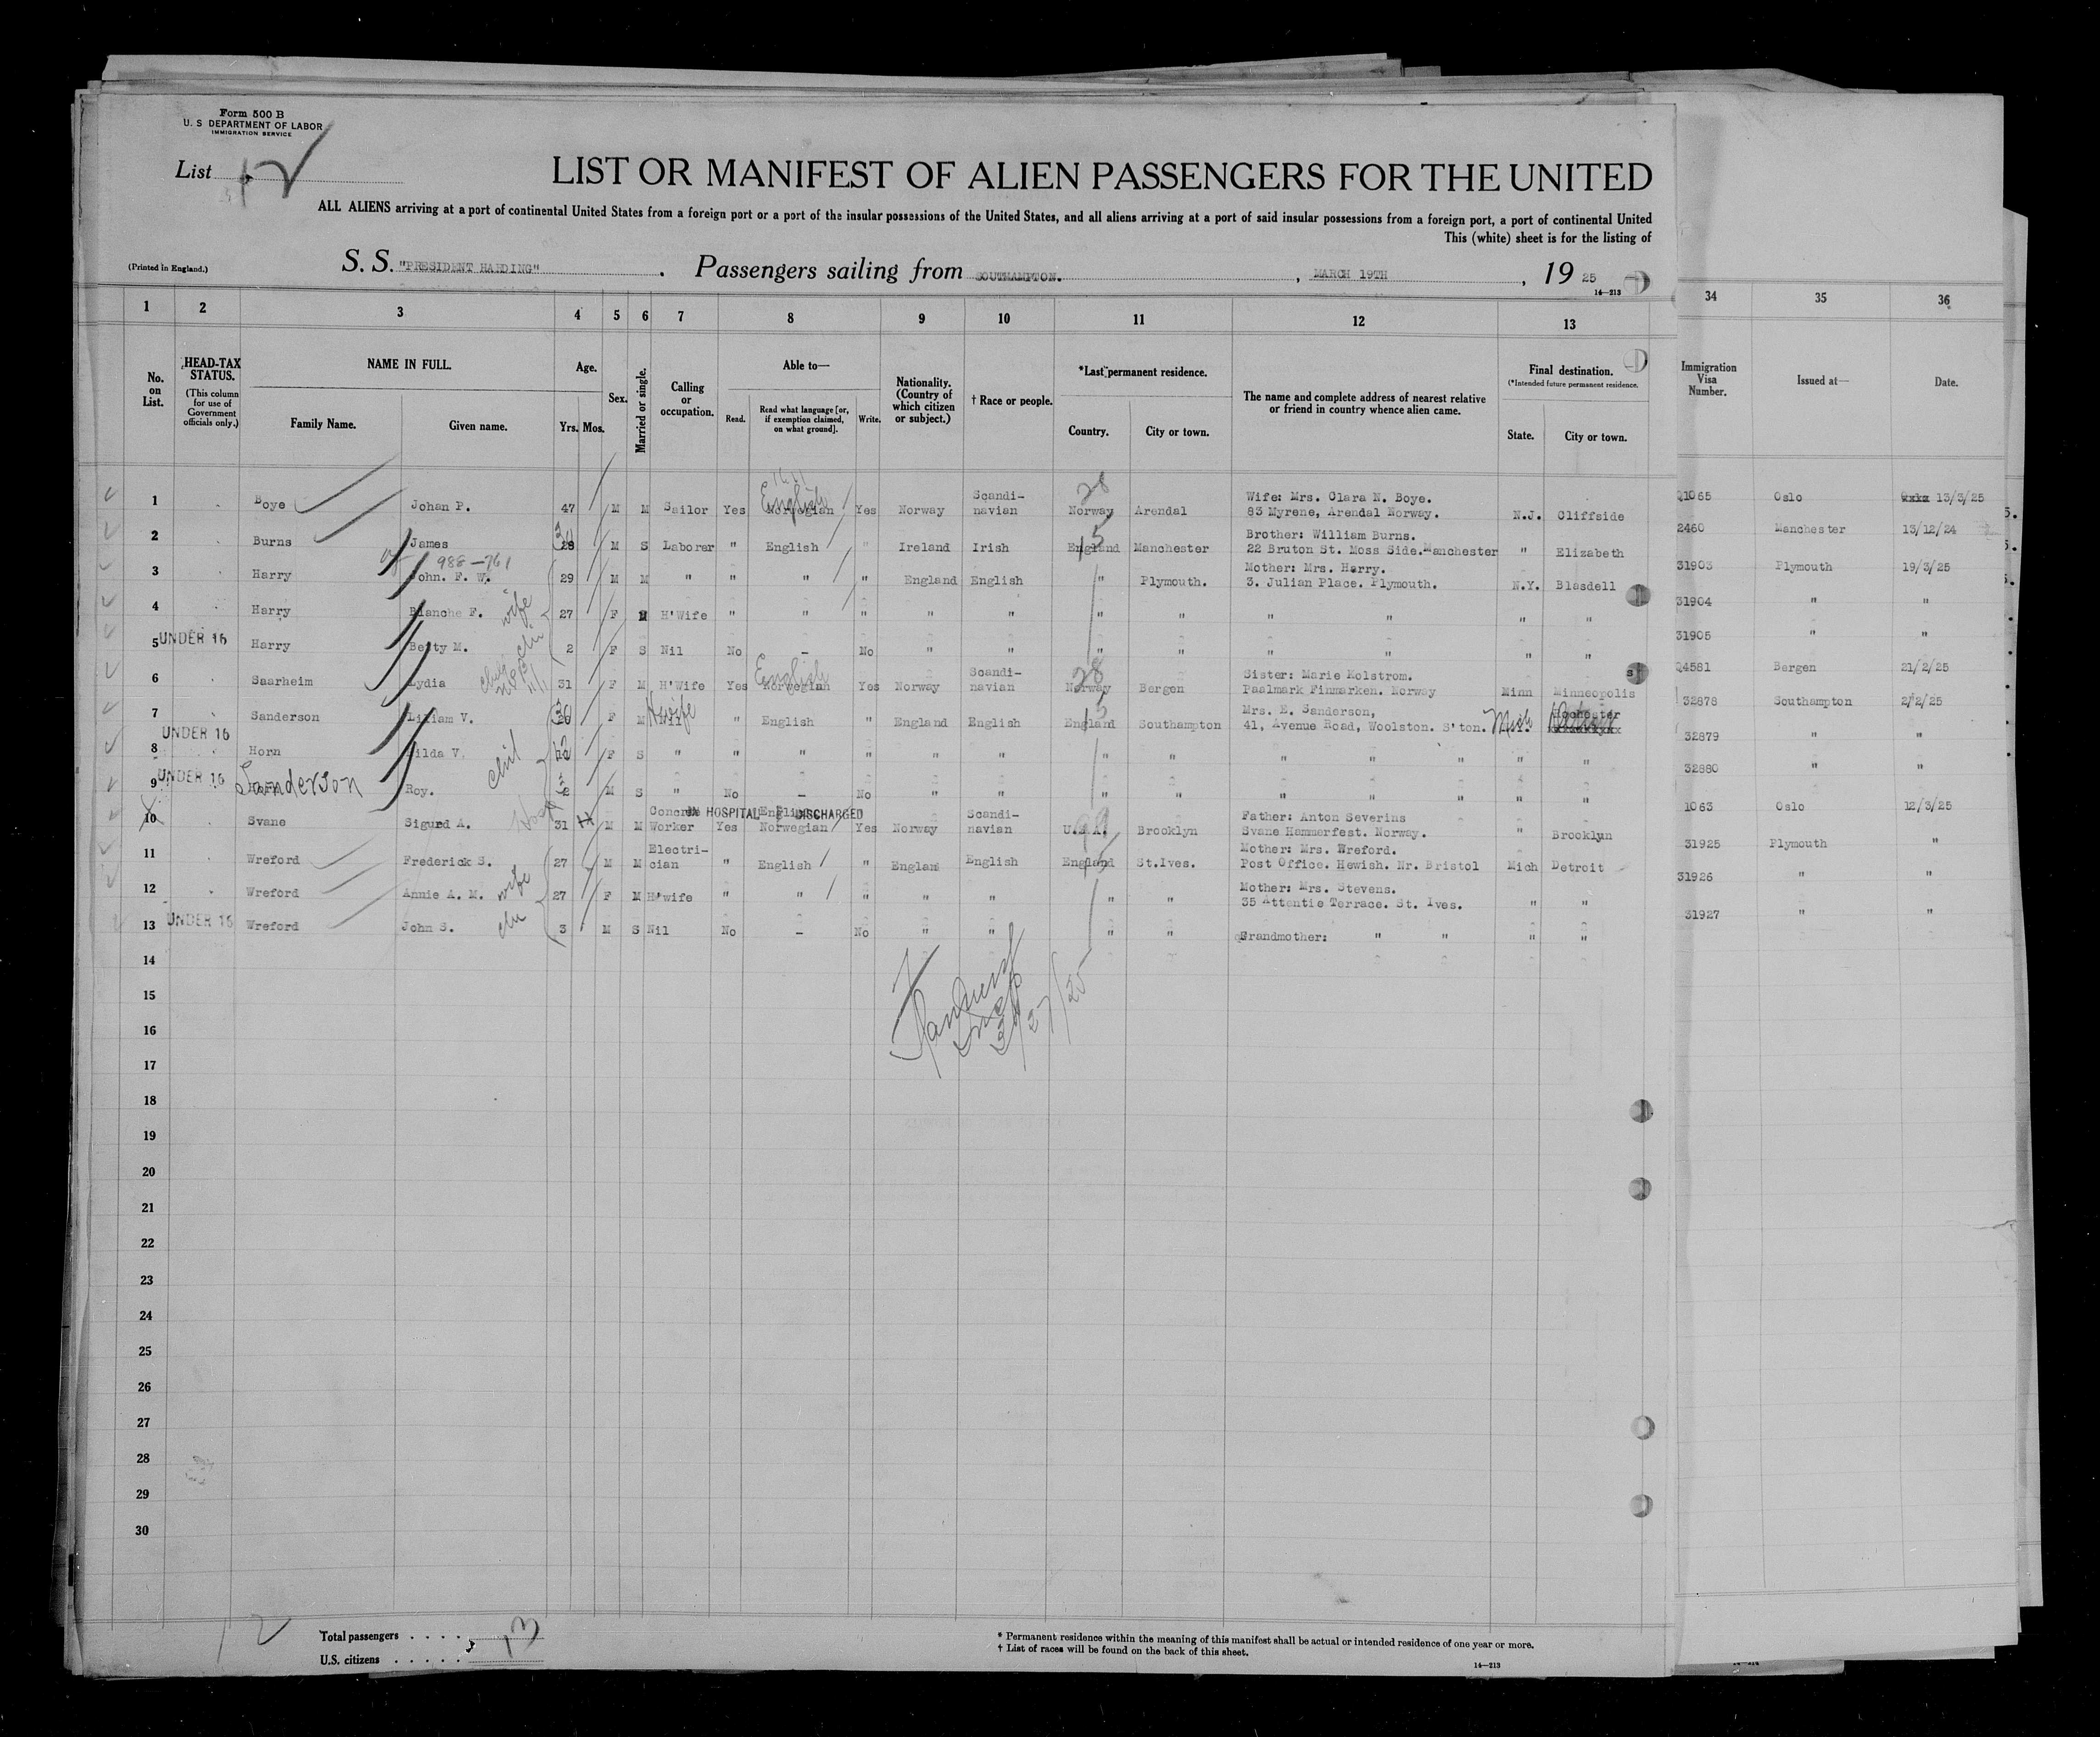 Form 500 B
U. S DEPARTMENT OF LABOR
IMMIGRATION SERVICE
List 12
LIST OR MANIFEST OF ALIEN PASSENGERS FOR THE UNITED
ALL ALIENS arriving at a port of continental United States from a foreign port or a port of the insular possessions of the United States, and all aliens arriving at a port of said insular possessions from a foreign port, a port of continental United
This (white) sheet is for the listing of
(Printed in England.) S. S. "PRESIDENT HARDING" . Passengers sailing from SOUTHAMPTON. , MARCH 19TH , 19 25
14—213
1 2 3 4 5 6 7 8 9 10 11 12 13 34 35 36
No. on List.
HEAD-TAX STATUS.
(This column for use of Government officials only.)
NAME IN FULL.
Family Name. Given name.
Age.
Yrs. Mos.
Sex.
Married or single.
Calling or occupation.
Able to—
Read. Read what language [or, if exemption claimed, on what ground]. Write.
Nationality. (Country of which citizen or subject.)
† Race or people.
*Last permanent residence.
Country. City or town.
The name and complete address of nearest relative or friend in country whence alien came.
Final destination.
(*Intended future permanent residence.
State. City or town.
Immigration Visa Number.
Issued at—
Date.
1 Boye Johan P. 47 M M Sailor Yes English Norwegian Yes Norway Scandi-navian 28 Norway Arendal Wife: Mrs. Clara N. Boye. 83 Myrene, Arendal Norway. N.J. Cliffside Q1065 Oslo 13/3/25
2 Burns James 30 M S Laborer " English " Ireland Irish 15 England Manchester Brother: William Burns. 22 Bruton St. Moss Side. Manchester " Elizabeth 2460 Manchester 13/12/24
988-761
3 Harry John. F. W. 29 M M " " " " England English " Plymouth. Mother: Mrs. Harry. 3. Julian Place. Plymouth. N.Y. Blasdell 31903 Plymouth 19/3/25
4 Harry Blanche F. wife 27 F M H'Wife " " " " " " " " " " " 31904 " "
5 UNDER 16 Harry Betty M. chil 2 F S Nil No — No " " " " " " " " 31905 " "
6 Saarheim Lydia 31 F M H'Wife Yes English Norwegian Yes Norway Scandi-navian 28 Norway Bergen Sister: Marie Kolstrom. Paalmark Finmarken. Norway Minn Minneopolis Q4581 Bergen 21/2/25
7 Sanderson Lilliam V. 30 F M H wife Nil " English " England English 15 England Southampton Mrs. E. Sanderson, 41, Avenue Road, Woolston. S'ton. Mich Rochester 32878 Southampton 2/2/25
8 UNDER 16 Horn Hilda V. chil 12 F S " " " " " " " " " " " " " 32879 " "
9 UNDER 16 Sanderson Roy. M S " No — No " " " " " " " " " 32880 " "
10 Svane Sigurd A. 31 M M Concrete Worker IN HOSPITAL DISCHARGED Yes English Norwegian Yes Norway Scandi-navian U.S.A. Brooklyn Father: Anton Severins Svane Hammerfest. Norway. " Brooklyn 1063 Oslo 12/3/25
11 Wreford Frederick S. 27 M M Electri-cian " English " Englam English England St.Ives. Mother: Mrs. Wreford. Post Office. Hewish. Nr. Bristol Mich Detroit 31925 Plymouth "
12 Wreford Annie A. M. wife 27 F M H'wife " " " " " " " Mother: Mrs. Stevens. 35 Attentie Terrace. St. Ives. " " 31926 " "
13 UNDER 16 Wreford John S. chi 3 M S Nil No — No " " " " Grandmother: " " " " 31927 " "
14
15
16
3/27/25
17
18
19
20
21
22
23
24
25
26
27
28
29
30
12
Total passengers . . . . 13
U.S. citizens . . . . .
* Permanent residence within the meaning of this manifest shall be actual or intended residence of one year or more.
† List of races will be found on the back of this sheet.
14—213